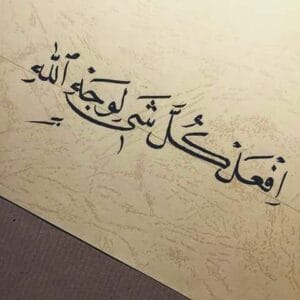 اِفْعَلْ كُلَّ شَيءٍ لِوَجْهِ ٱللهِ